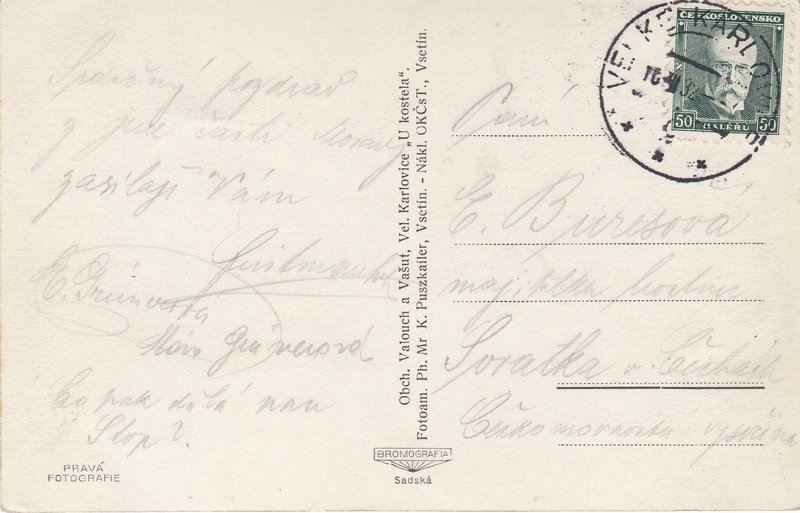 Srdečný pozdrav
z části Moravy
zasílají Vám
E. Grünerová
Grünerová
Co pak dělá pan
Slop?
PRAVÁ
FOTOGRAFIE
Obch. Valouch a Vašut, Vel. Karlovice „U kostela".
Fotoam. Ph. Mr K. Puszkailer, Vsetín. - Nákl. OKČsT., Vsetín.
BROMOGRAFIA
Sadská
ČESKOSLOVENSKO
50 HALÉŘŮ 50
VELKÉ KARLOV
Paní
E. Burešová
majitelka hostince
Soratka v Čechách
Českomoravská vysočina